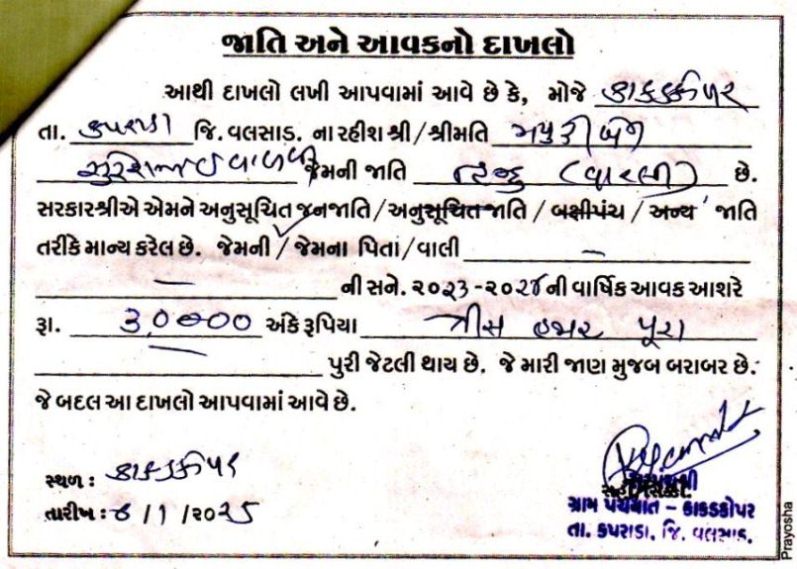 જાતિ અને આવકનો દાખલો
આથી દાખલો લખી આપવામાં આવે છે કે, મોજે કાકડકોપર
તા. કપરાડા જિ. વલસાડ. ના રહીશ શ્રી/શ્રીમતિ મયુરીબેન
સુરેશભાઇ વાળવી જેમની જાતિ હિન્દુ (વારલી) છે.
સરકારશ્રીએ એમને અનુસૂચિત જનજાતિ/અનુસૂચિત જાતિ / બક્ષીપંચ / અન્ય જાતિ
તરીકે માન્ય કરેલ છે. જેમની / જેમના પિતા/વાલી —
— ની સને. ૨૦૨૩-૨૦૨૪ ની વાર્ષિક આવક આશરે
રૂા. ૩,૦૦૦૦ અંકે રૂપિયા ત્રીસ હજાર પૂરા
— પુરી જેટલી થાય છે. જે મારી જાણ મુજબ બરાબર છે.
જે બદલ આ દાખલો આપવામાં આવે છે.
સ્થળ : કાકડકોપર
તારીખ : ૬/1/૨૦૨૫
ગ્રામ પંચાયત - કાકડકોપર
તા. કપરાડા, જિ. વલસાડ.
Prayosha